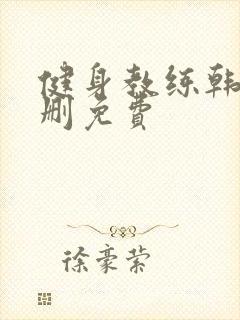 健身教练韩
删免费
徐豪萦